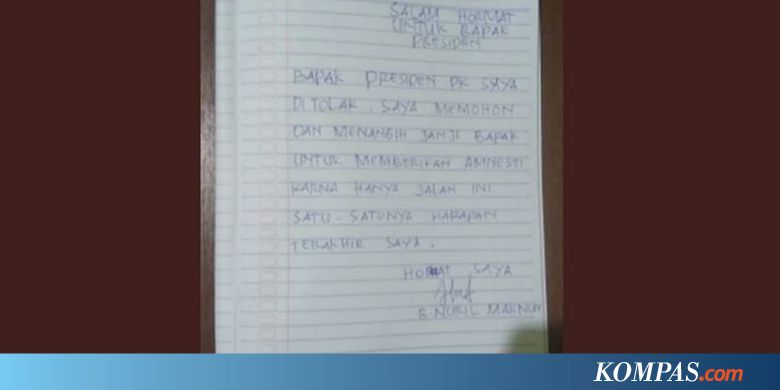 SALAM HORMAT
UNTUK BAPAK
PRESIDEN
BAPAK PRESIDEN PK SAYA
DI TOLAK. SAYA MEMOHON
DAN MENANGIH JANJI BAPAK
UNTUK MEMBERIKAN AMNESTI
KARNA HANYA JALAN INI
SATU-SATUNYA HARAPAN
TERAKHIR SAYA.
HORMAT SAYA
B. NURIL MAKNUN
KOMPAS.com